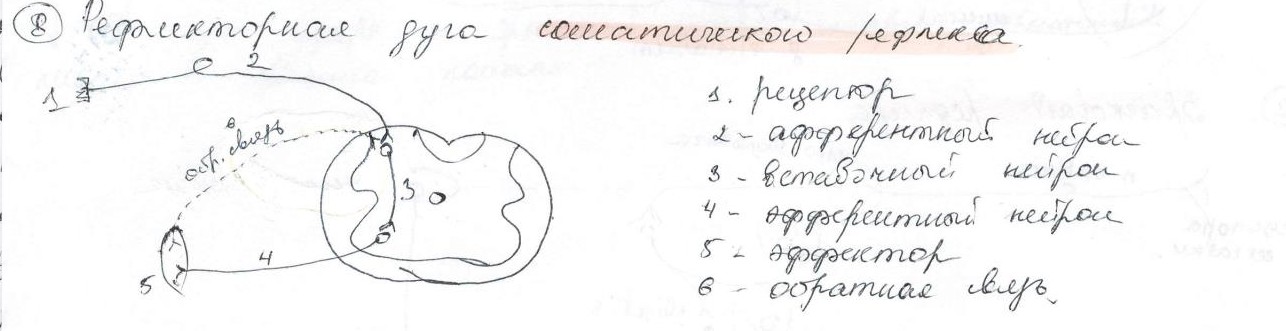 8 Рефлекторная дуга соматического рефлекса.
2
1
1. рецептор
6
обр. связь
2 - афферентный нейрон
3
3 - вставочный нейрон
4 - эфферентный нейрон
4
5 - эффектор
5
6 - обратная связь.